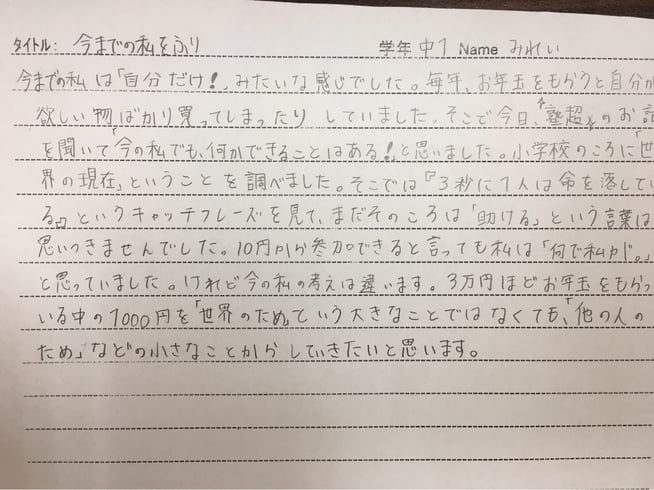 タイトル: 今までの私をふり 学年 中1 Name みれい
今までの私は「自分だけ!」みたいな感じでした。毎年、お年玉をもらうと自分が
欲しい物ばかり買ってしまったりしていました。そこで今日、塾超のお話
を聞いて「今の私でも、何かできることはある!」と思いました。小学校のころに「世
界の現在」ということを調べました。そこでは『3秒に1人は命を落してい
る』というキャッチフレーズを見て、まだそのころは「助ける」という言葉は
思いつきませんでした。10円から参加できると言っても私は「何で私が。」
と思っていました。けれど今の私の考えは違います。3万円ほどお年玉をもらっ
いる中の1000円を「世界のため」ていう大きなことではなくても、「他の人の
ため」などの小さなことからしていきたいと思います。